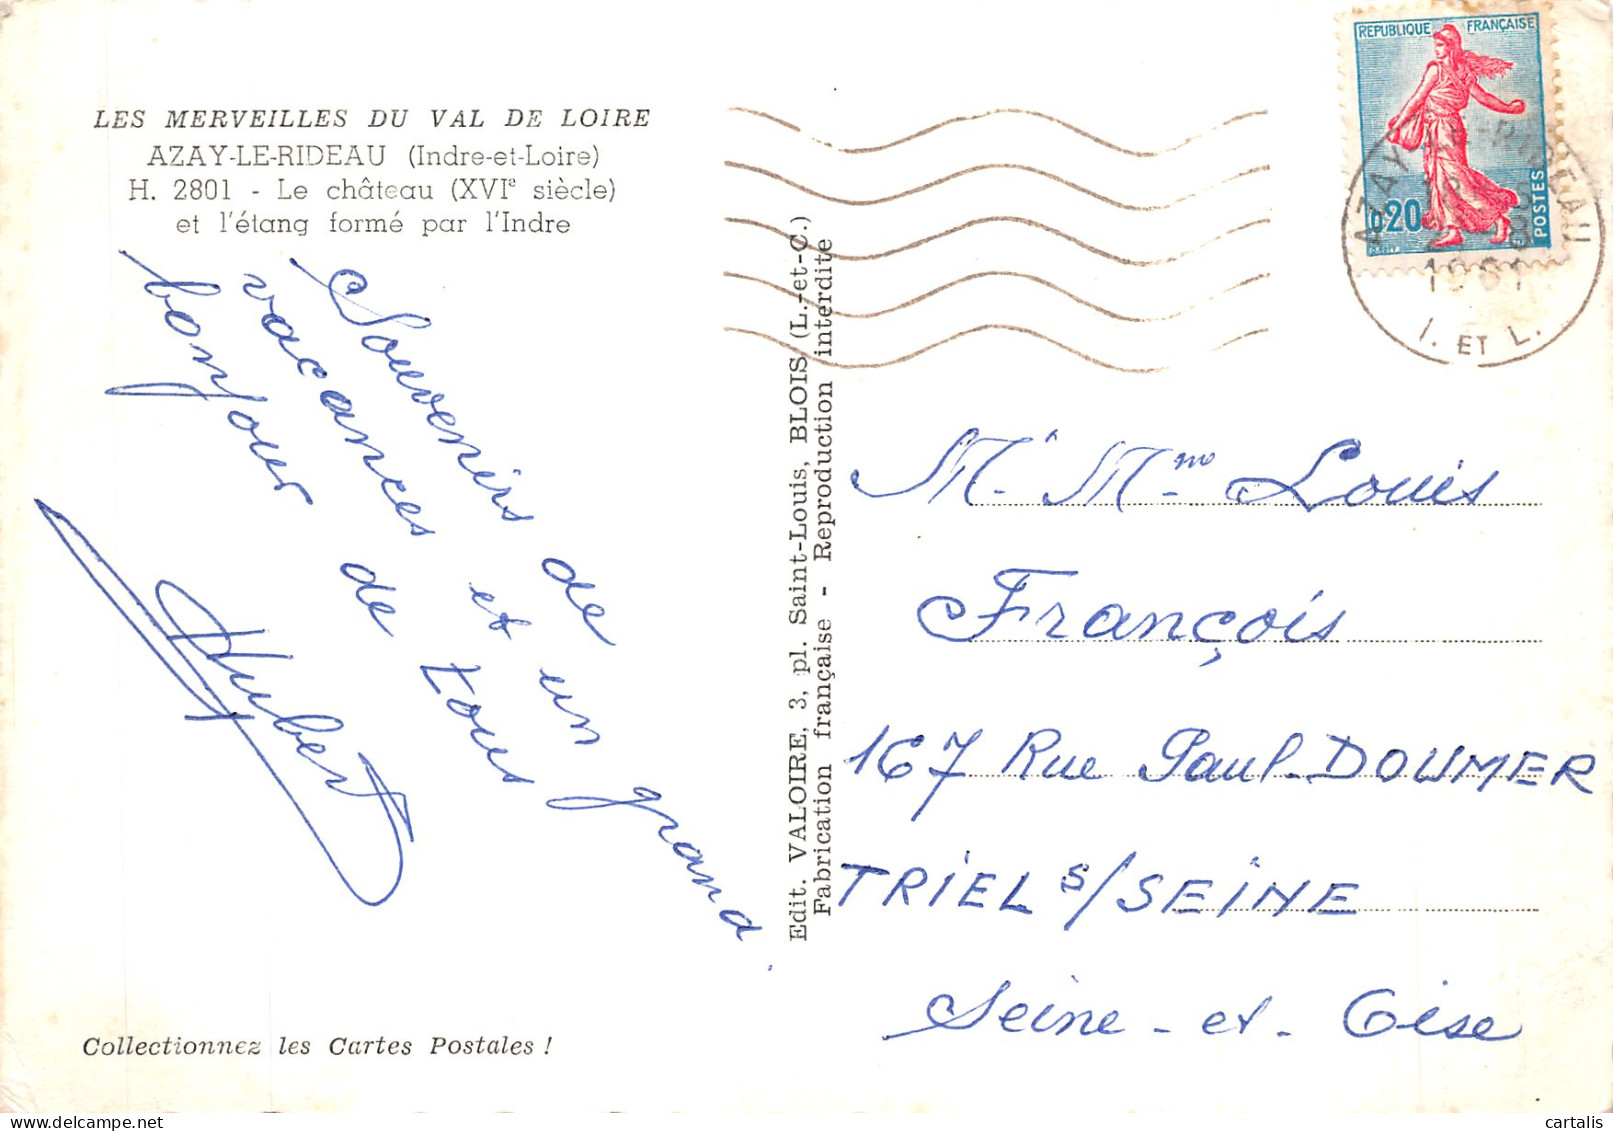 LES MERVEILLES DU VAL DE LOIRE
AZAY-LE-RIDEAU (Indre-et-Loire)
H. 2801 - Le château (XVIe siècle)
et l'étang formé par l'Indre
Souvenirs de
vacances et un grand
bonjour de tous
Hubert
Collectionnez les Cartes Postales !
Edit. VALOIRE, 3, pl. Saint-Louis, BLOIS (L.-et-C.)
Fabrication française - Reproduction interdite
REPUBLIQUE FRANÇAISE
0,20
POSTES
AZAY-LE-RIDEAU
1961
I. ET L.
M. Mme Louis
François
167 Rue Paul-DOUMER
TRIEL S/SEINE
Seine-et-Oise
cartalis